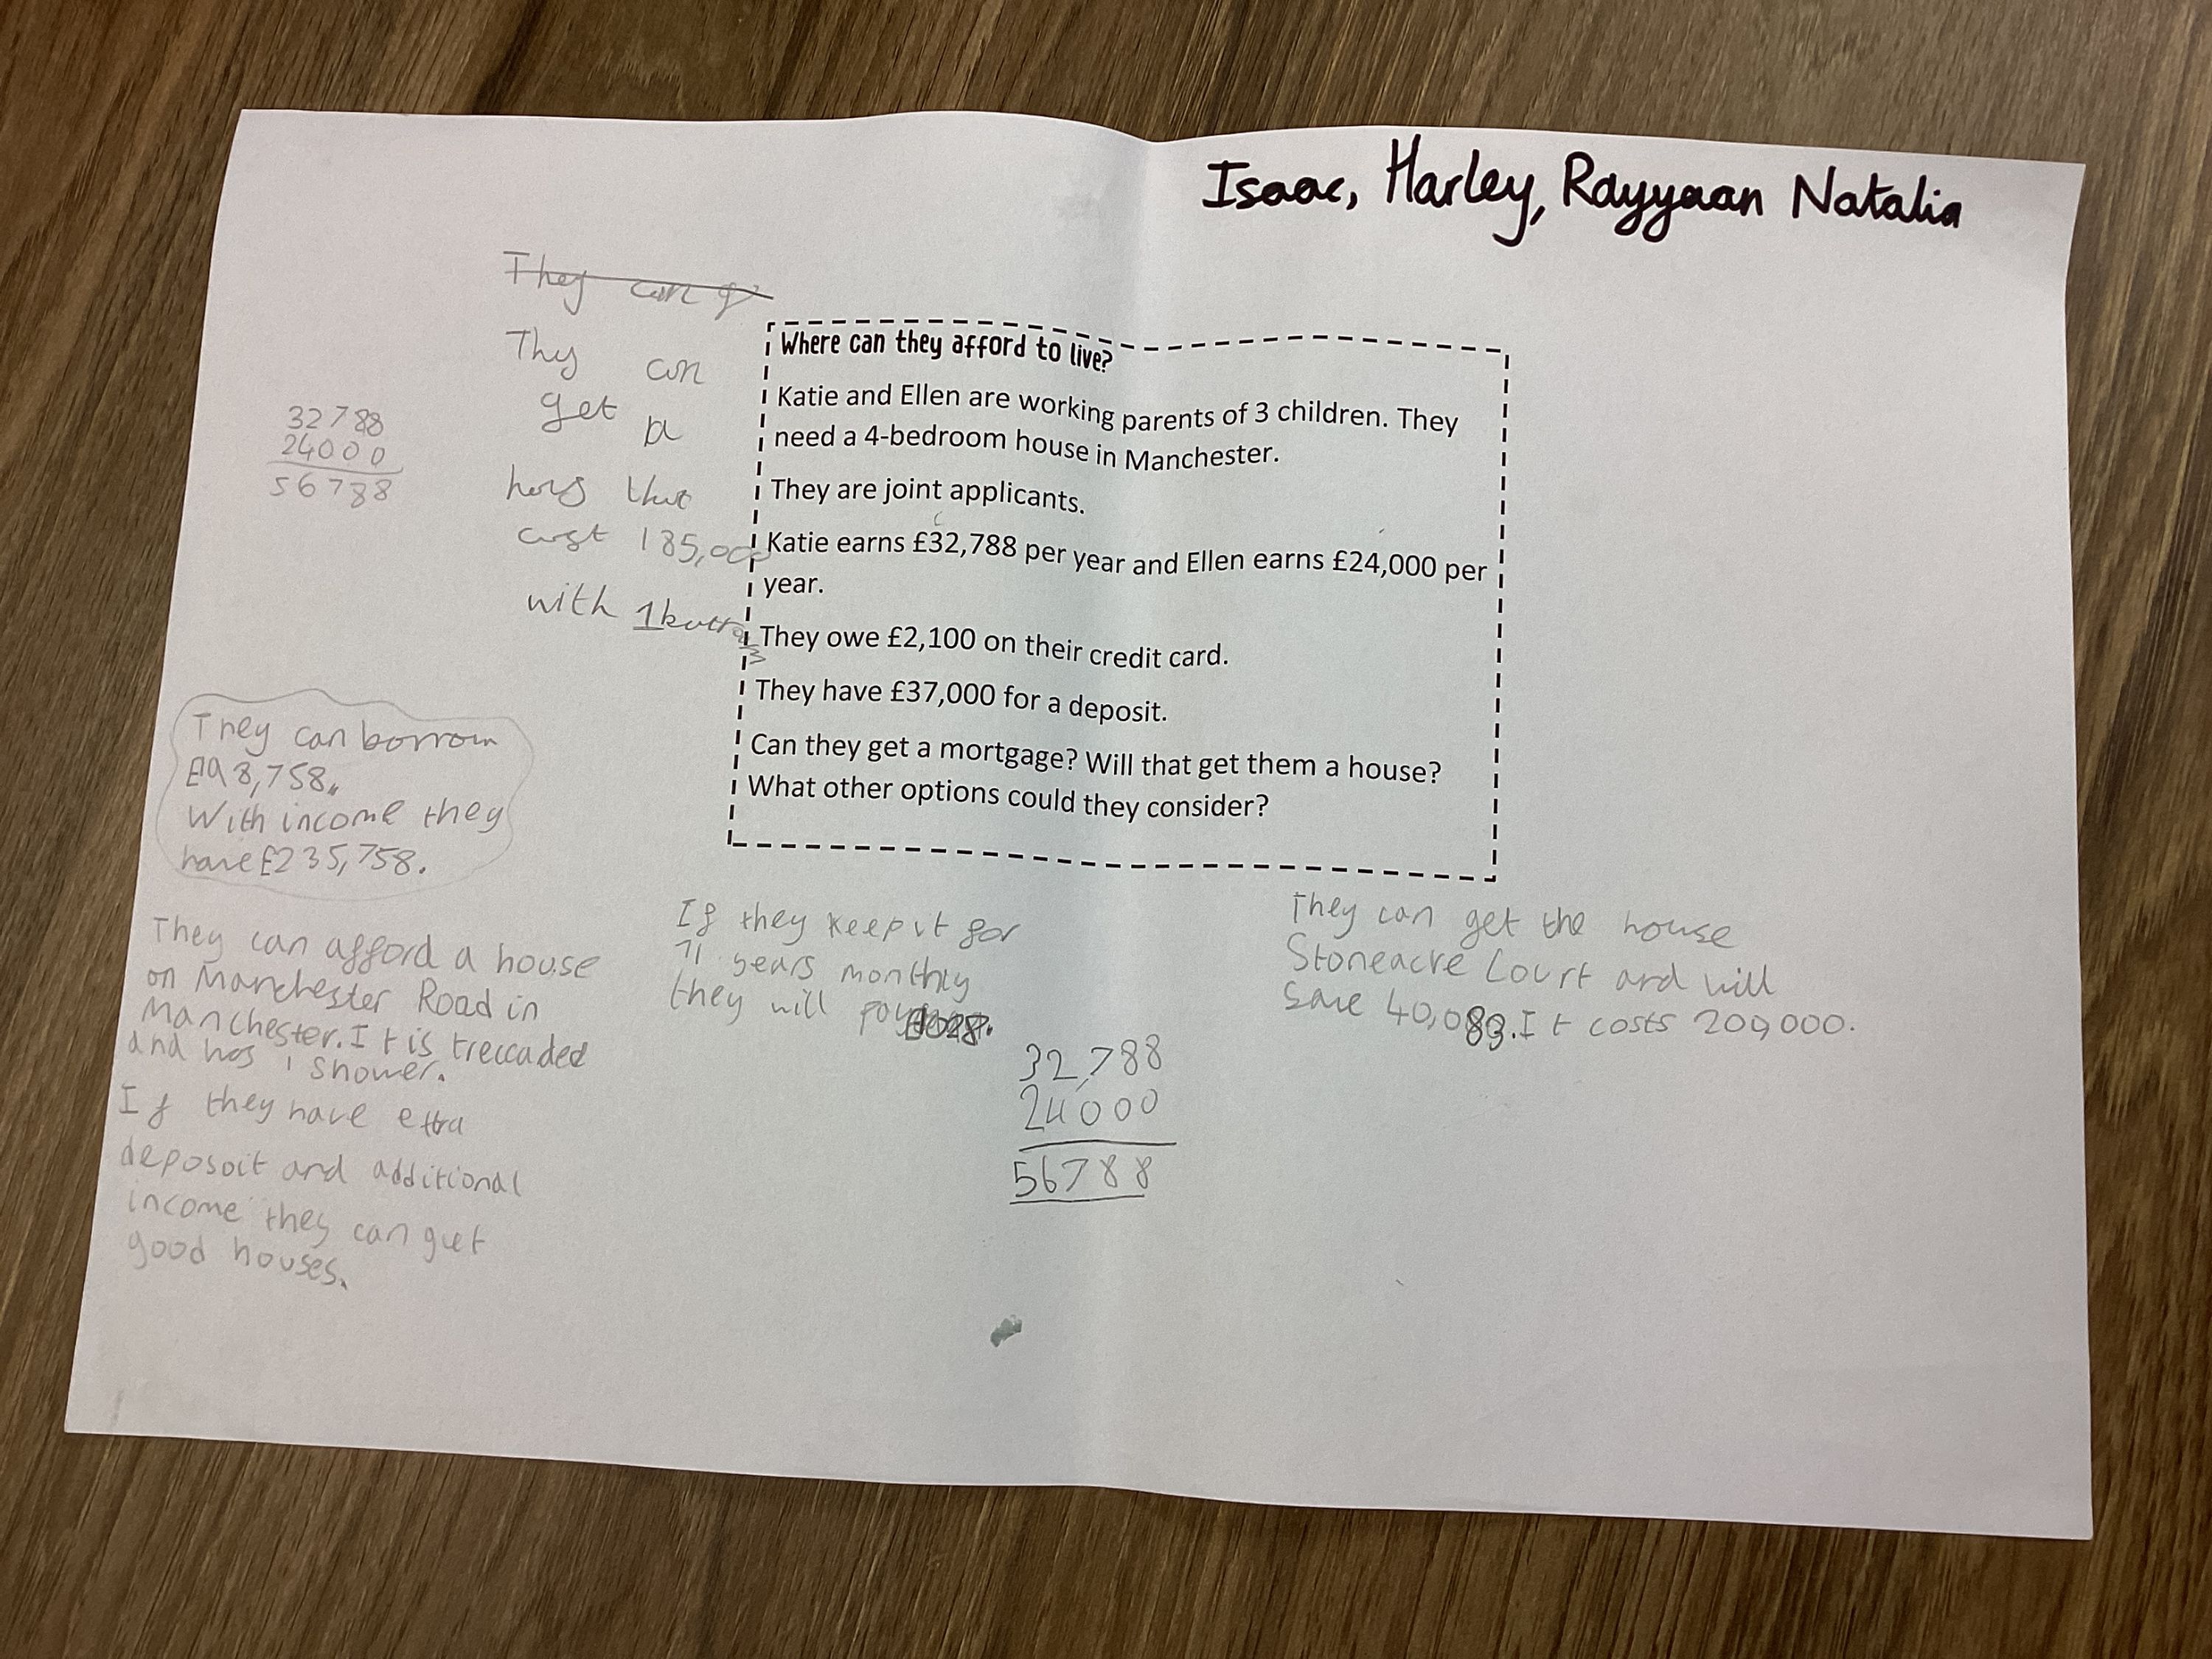 Isaac, Harley, Rayyaan Natalia
They can
Thy can
get a
that
cost 185,000
with 1
32788
24000
56788
Where can they afford to live?
Katie and Ellen are working parents of 3 children. They
need a 4-bedroom house in Manchester.
They are joint applicants.
Katie earns £32,788 per year and Ellen earns £24,000 per
year.
They owe £2,100 on their credit card.
They have £37,000 for a deposit.
Can they get a mortgage? Will that get them a house?
What other options could they consider?
They can borrow
£198,758.
With income they
have £235,758.
They can afford a house
on Manchester Road in
Manchester. It is treccaded
and has 1 shower.
If they have etra
deposoit and additional
income they can get
good houses.
If they keep it for
years monthly
they will pay
32,788
24000
56788
They can get the house
Stoneacre Court and will
save It costs 200,000.